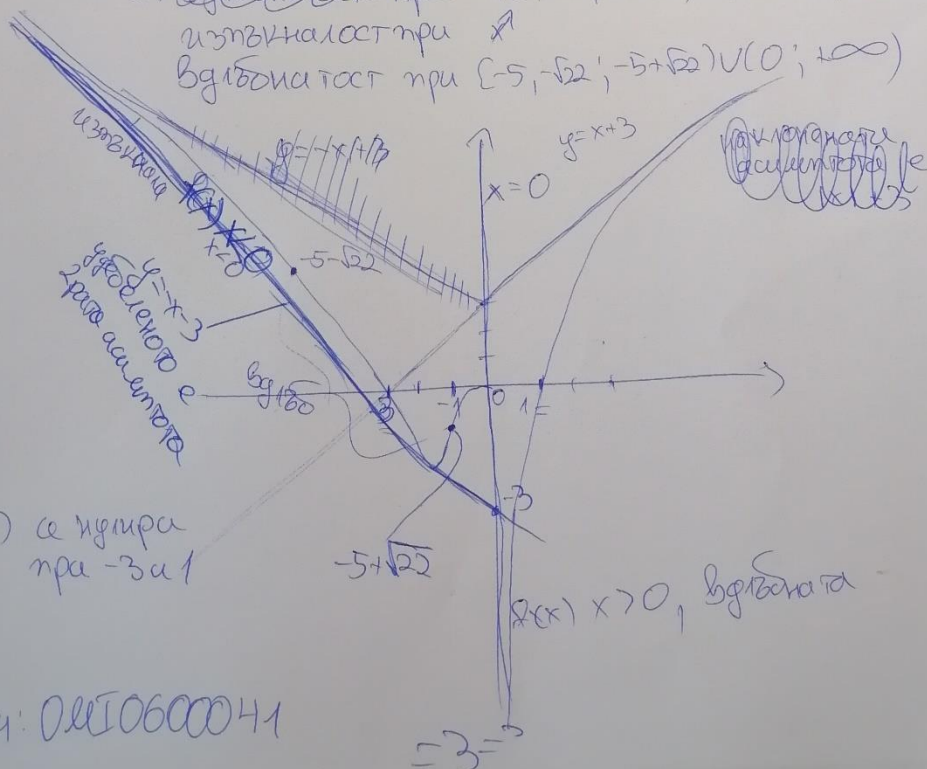 изпъкналост при x
вдлъбнатост при (-5,-√22; -5+√22)∪(0; +∞)
y=x+3
x=0
изпъкнала
f(x) x<0
x<0
-5-√22
y=-x-3
удебеленото е
2рата асимптота
вдлъб
-3
-1
0
1
-3
) се нулира
при -3 и 1
-5+√22
f(x) x>0, вдлъбната
: 0MI0600041